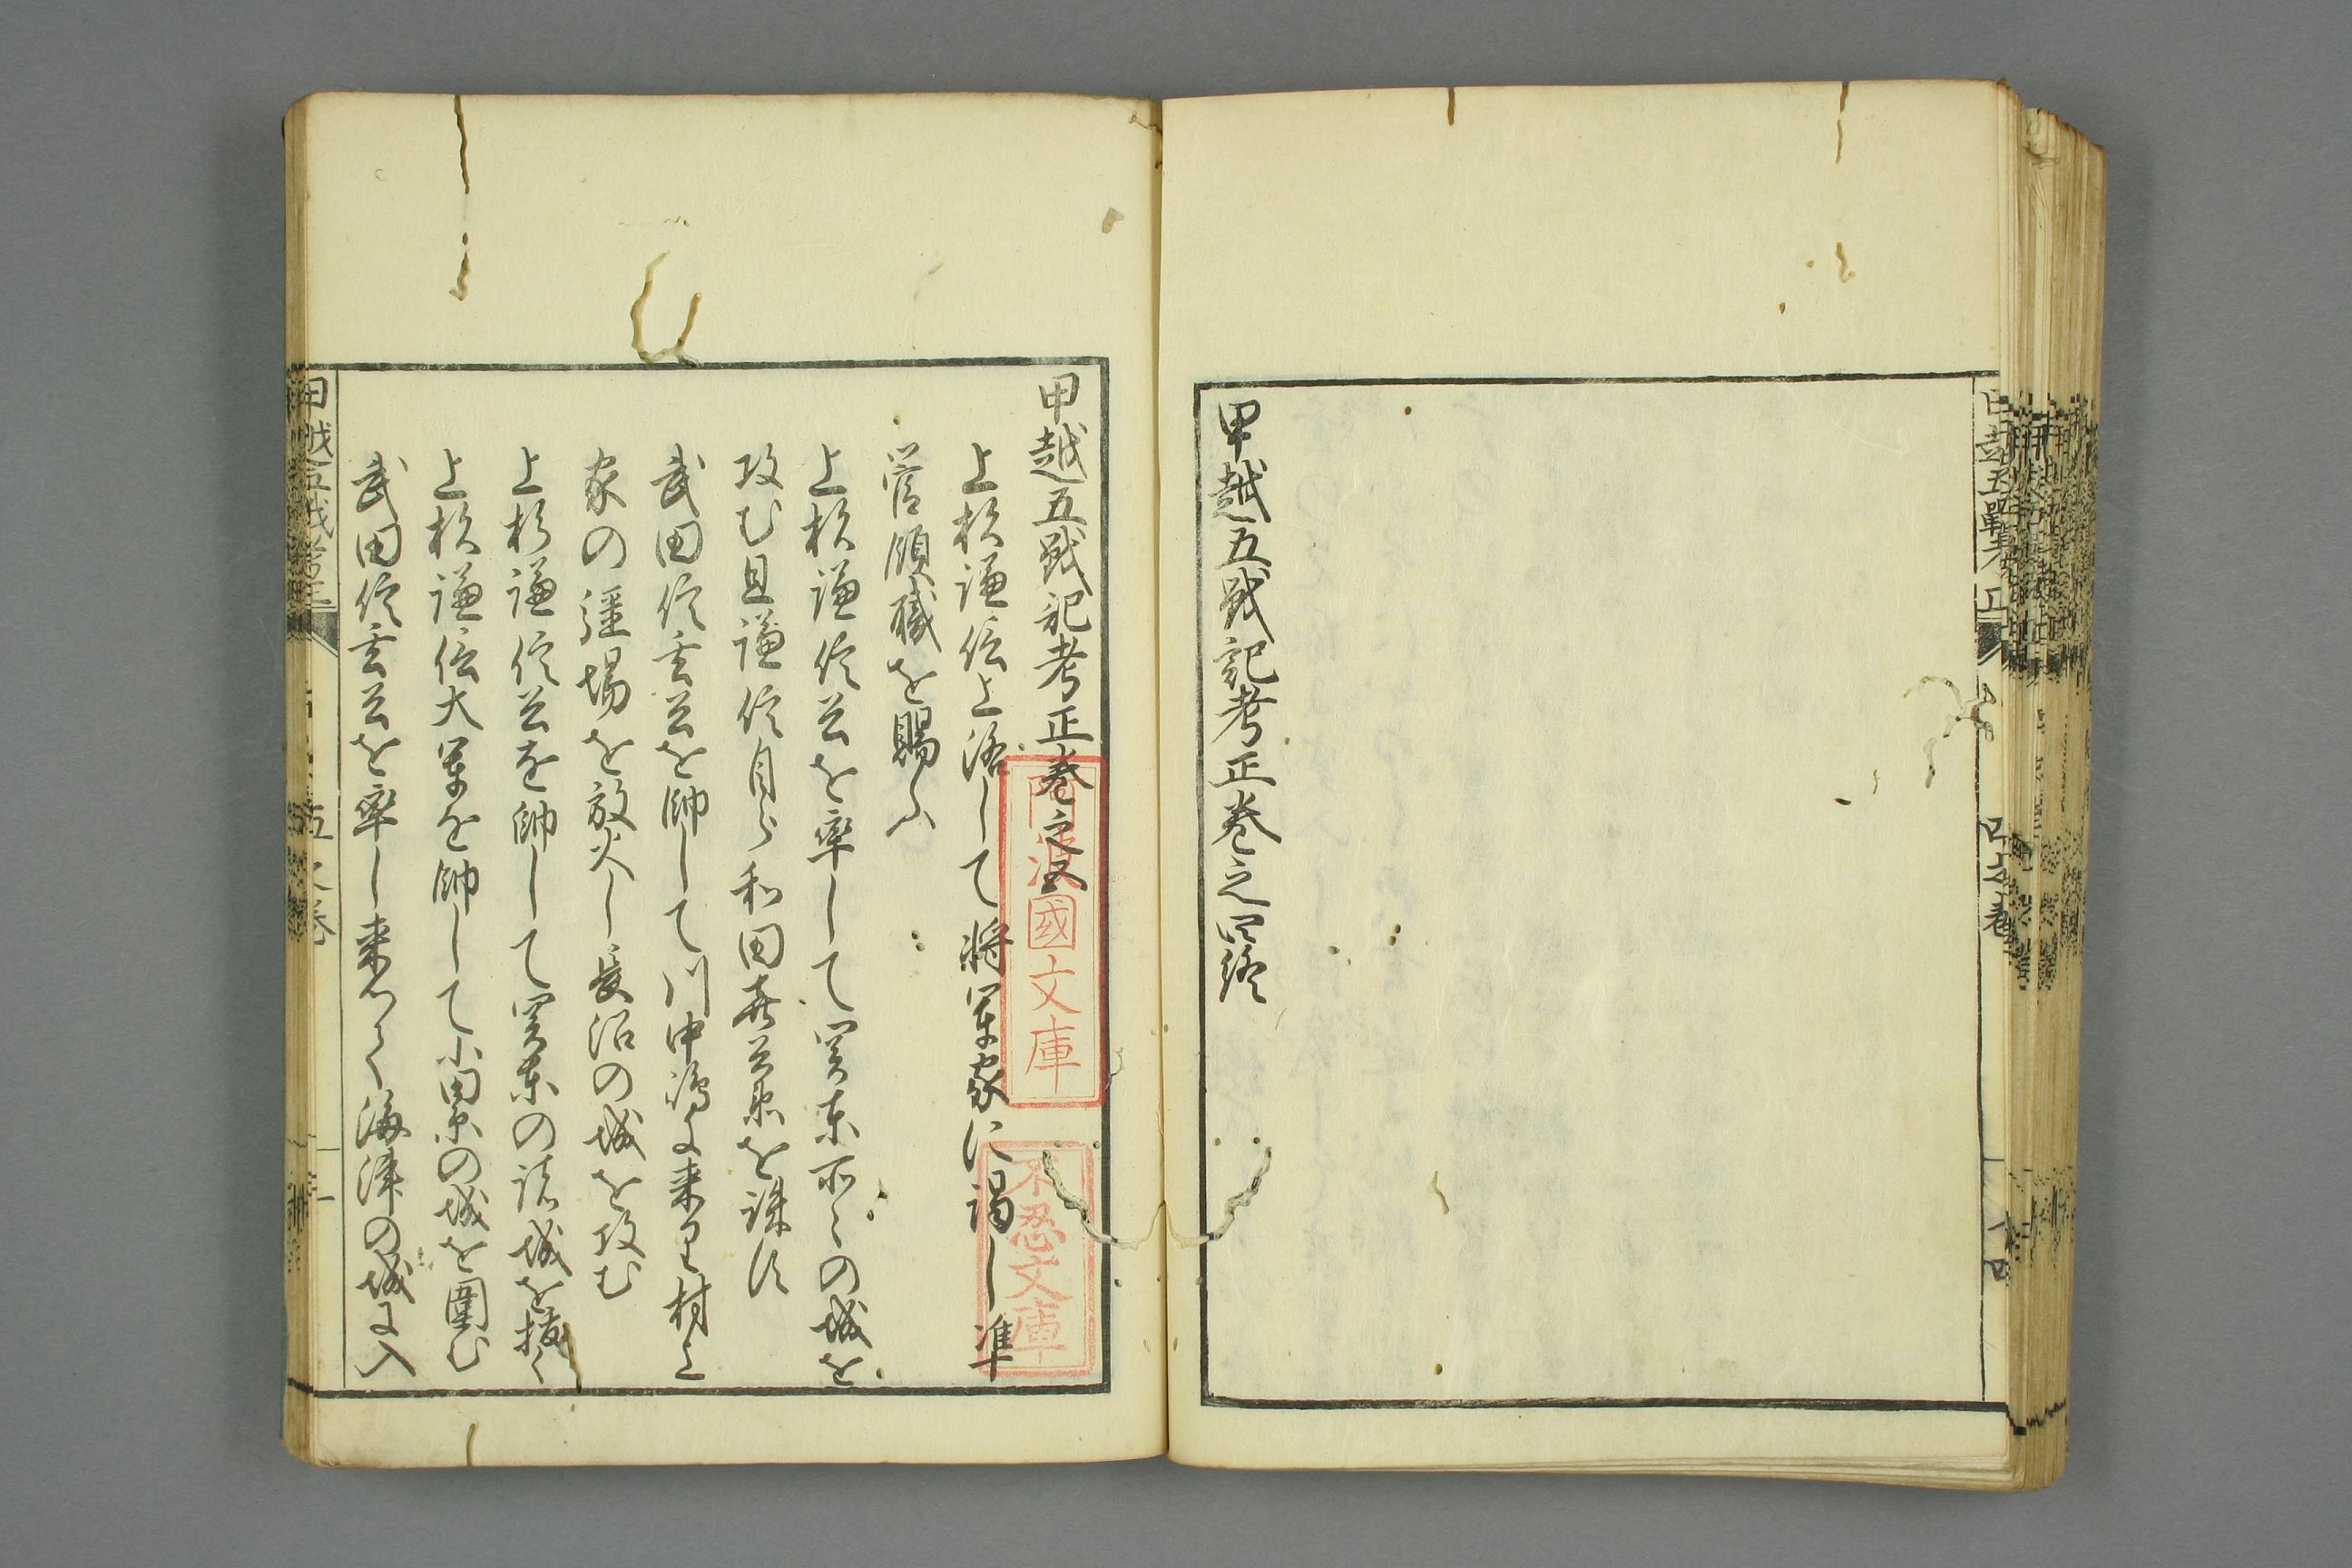 甲越五戦記考正巻之四終
甲越五戦記考正巻之五
上杉謙信上洛して将軍家に謁し準
管領職を賜ふ
上杉謙信兵を率して関東所々の城を
攻む且謙信自ら和田喜兵衛を誅す
武田信玄兵を帥して川中嶋に来り村上
家の疆場を放火し長沼の城を攻む
上杉謙信兵を帥して関東の諸城を抜く
上杉謙信大軍を帥して小田原の城を圍む
武田信玄兵を率し来つて海津の城に入
阿波國文庫
不忍文庫